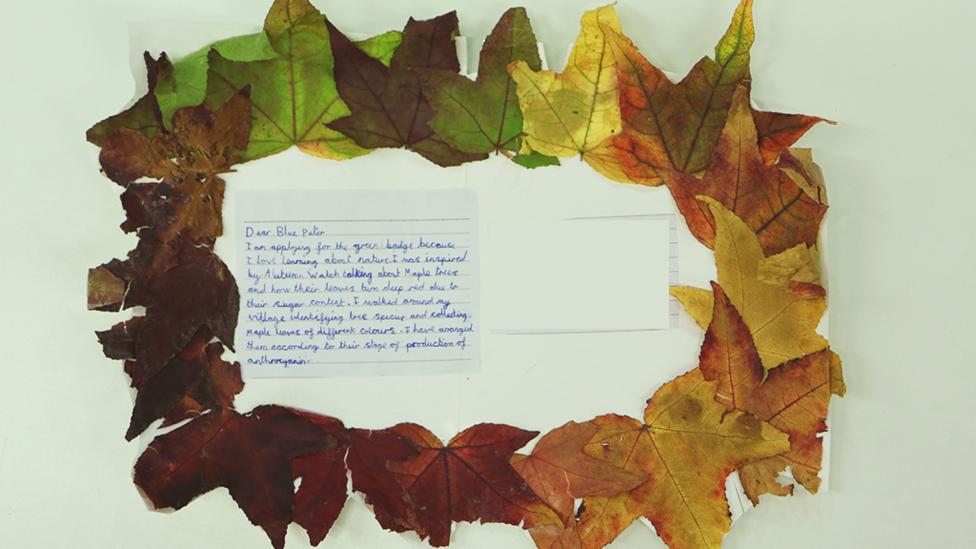 Dear Blue Peter
I am applying for the green badge because
I love learning about nature. I was inspired
by Autumn Watch talking about Maple trees
and how their leaves turn deep red due to
their sugar content. I walked around my
village identifying tree species and collecting
Maple leaves of different colours. I have arranged
them according to their stage of production of
anthrocyanin.